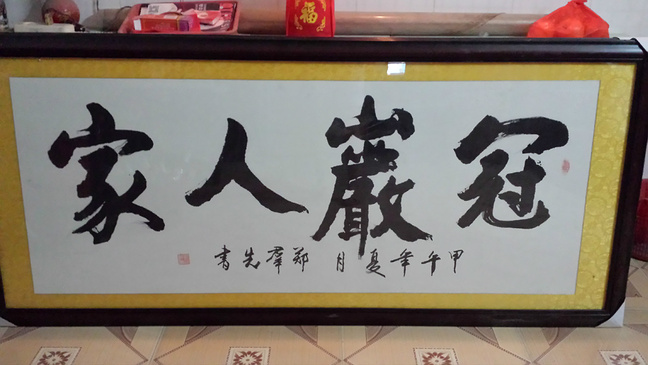 福
冠巖人家
甲午年夏月 鄭羣先書